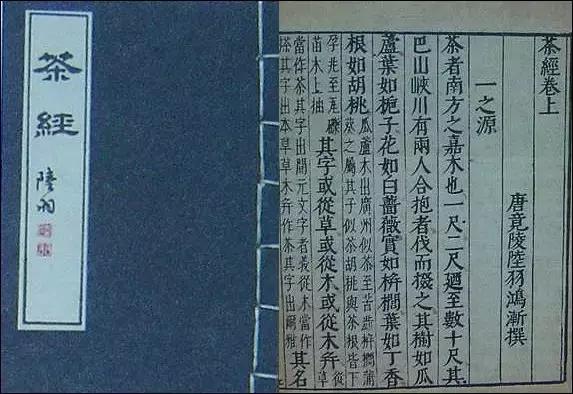 茶經
陸羽
茶經卷上
唐竟陵陸羽鴻漸撰
一之源
茶者南方之嘉木也一尺二尺廼至數十尺其
巴山峽川有兩人合抱者伐而掇之其樹如瓜
蘆葉如梔子花如白薔薇實如栟櫚葉如丁香
根如胡桃瓜蘆木出廣州似茶至苦澁栟櫚蒲
葵之屬其子似茶胡桃與茶根皆下
孕兆至瓦礫
苗木上抽其字或從草或從木或從木并從
草
當作茶其字出開元文字音義從木當作
搽其字出本草草木并作茶其字出爾雅其名